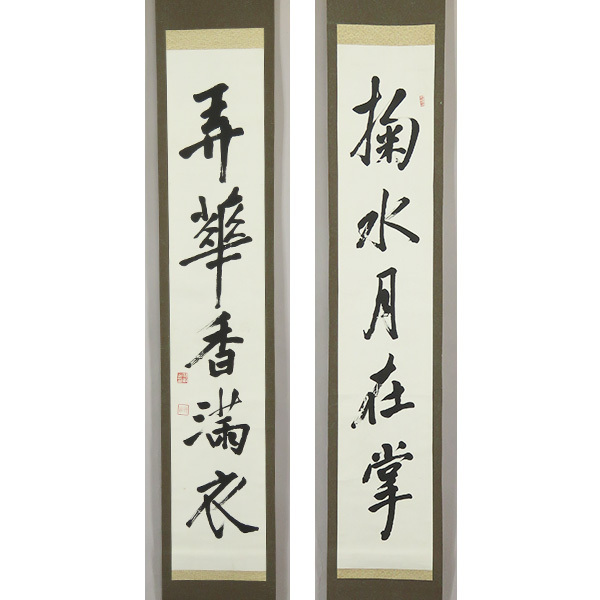 掬水月在掌
弄華香満衣